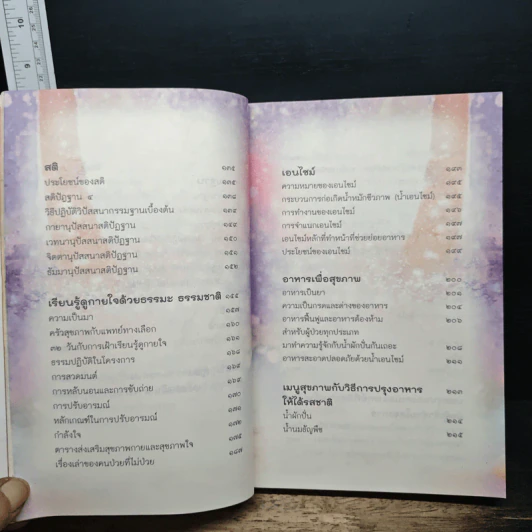 สติ ๑๓๕
ประโยชน์ของสติ ๑๓๕
สติปัฏฐาน ๔ ๑๓๘
วิธีปฏิบัติวิปัสสนากรรมฐานเบื้องต้น ๑๓๙
กายานุปัสสนาสติปัฏฐาน ๑๔๙
เวทนานุปัสสนาสติปัฏฐาน ๑๕๐
จิตตานุปัสสนาสติปัฏฐาน ๑๕๑
ธัมมานุปัสสนาสติปัฏฐาน ๑๕๒
เรียนรู้ดูกายใจด้วยธรรมะ ธรรมชาติ ๑๕๔
ความเป็นมา ๑๕๗
ครัวสุขภาพกับแพทย์ทางเลือก ๑๖๐
๓๒ วันกับการเฝ้าเรียนรู้ดูกายใจ ๑๖๑
ธรรมปฏิบัติในโครงการ ๑๖๘
การสวดมนต์ ๑๖๙
การหลับนอนและการขับถ่าย ๑๗๐
การปรับอารมณ์ ๑๗๑
หลักเกณฑ์ในการปรับอารมณ์ ๑๗๒
กำลังใจ ๑๗๕
ตารางส่งเสริมสุขภาพกายและสุขภาพใจ
เรื่องเล่าของคนป่วยที่ไม่ป่วย ๑๘๗
เอนไซม์ ๑๙๓
ความหมายของเอนไซม์ ๑๙๕
กระบวนการก่อเกิดน้ำหมักชีวภาพ (น้ำเอนไซม์) ๑๙๕
การทำงานของเอนไซม์ ๑๙๖
การจำแนกเอนไซม์ ๑๙๗
เอนไซม์หลักที่ทำหน้าที่ช่วยย่อยอาหาร ๑๙๗
ประโยชน์ของเอนไซม์ ๑๙๙
อาหารเพื่อสุขภาพ ๒๐๐
อาหารเป็นยา ๒๐๑
ความเป็นกรดและด่างของอาหาร ๒๐๔
อาหารฟื้นฟูและอาหารต้องห้าม ๒๐๖
สำหรับผู้ป่วยทุกประเภท
มาทำความรู้จักกับน้ำผักปั่นกันเถอะ ๒๐๘
อาหารสะอาดปลอดภัยด้วยน้ำเอนไซม์ ๒๑๑
เมนูสุขภาพกับวิธีการปรุงอาหาร ๒๑๓
ให้ได้รสชาติ
น้ำผักปั่น ๒๑๔
น้ำนมธัญพืช ๒๑๕